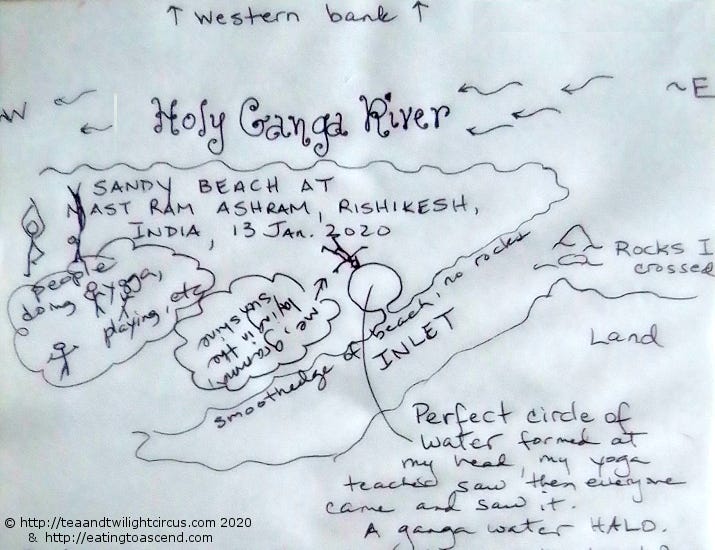 ↑ Western bank ↑
W
~E
Holy Ganga River
SANDY BEACH AT
MAST RAM ASHRAM, RISHIKESH,
INDIA, 13 Jan. 2020
people
doing yoga,
playing, etc
me, grammi,
laying in the
sunshine
smooth edge of beach, no rocks
INLET
Rocks I
crossed
Land
Perfect circle of
water formed at
my head, my yoga
teacher saw then everyone
came and saw it.
A ganga water HALO.
© http://teaandtwilightcircus.com 2020
& http://eatingtoascend.com